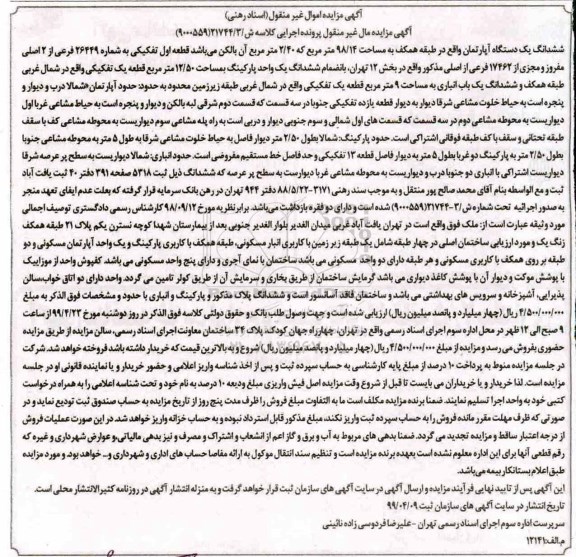 آگهی مزایده اموال غیر منقول(اسناد رهنی)
آگهی مزایده مال غیر منقول پرونده اجرایی کلاسه ش/۲۱۷۴۴/۳(۹۰۰۰۵۵۹)
ششدانگ یک دستگاه آپارتمان واقع در طبقه همکف به مساحت ۹۸/۱۴ متر مربع که ۲/۴۰ متر مربع آن بالکن می‌باشد قطعه اول تفکیکی به شماره ۲۶۴۴۹ فرعی از ۲ اصلی
مفروز و مجزی از ۱۷۴۶۲ فرعی از اصلی مذکور واقع در بخش ۱۲ تهران، بانضمام ششدانگ یک واحد پارکینگ بمساحت ۱۲/۵۰ متر مربع قطعه یک تفکیکی واقع در شمال غربی
طبقه همکف و ششدانگ یک باب انباری به مساحت ۹ متر مربع قطعه یک تفکیکی واقع در شمال غربی طبقه زیرزمین محدود به حدود: حدود آپارتمان: شمالا درب و دیوار و
پنجره است به حیاط خلوت مشاعی شرقا دیوار به دیوار قطعه یازده تفکیکی جنوبا در سه قسمت که قسمت دوم شرقی لبه بالکن و دیوار و پنجره است به حیاط مشاعی غربا اول
دیواریست به محوطه مشاعی دوم در سه قسمت که قسمت های اول شمالی و سوم جنوبی دیوار و دربی است به راه پله مشاعی سوم دیواریست به محوطه مشاعی کف با سقف
طبقه تحتانی و سقف با کف طبقه فوقانی اشتراکی است. حدود پارکینگ: شمالا بطول ۲/۵۰ متر دیوار فاصل به حیاط خلوت مشاعی شرقا به طول ۵ متر به محوطه مشاعی جنوبا
بطول ۲/۵۰ متر به پارکینگ دو غربا بطول ۵ متر به دیوار فاصل قطعه ۱۳ تفکیکی و حد فاصل خط مستقیم مفروضی است. حدود انباری: شمالا دیواریست به سطح پر عرصه شرقا
دیواریست اشتراکی با انباری دو جنوبا درب و دیواریست به محوطه مشاعی غربا دیوارست به سطح پر عرصه که ششدانگ ذیل ثبت ۵۳۱۸ صفحه ۳۹۱ دفتر ۴۰ ثبت یافت آباد
ثبت و مع الواسطه بنام آقای محمد صالح پور منتقل و به موجب سند رهنی ۳۱۷۱-۸۸/۵/۲۲ دفتر ۹۴۴ تهران در رهن بانک سرمایه قرار گرفته که بعلت عدم ایفای تعهد منجر
به صدور اجرائیه تحت شماره ش/۳-۲۱۷۴۴(۹۰۰۰۵۵۹) شده است و دارای دو فقره بازداشت می‌باشد. برابر نظریه مورخ ۹۸/۰۹/۱۲ کارشناس رسمی دادگستری توصیف اجمالی
مورد وثیقه عبارت است از: ملک فوق واقع است در تهران یافت آباد غربی میدان الغدیر بلوار الغدیر جنوبی بعد از بیمارستان شهدا کوچه نسترن یکم پلاک ۲۱ طبقه همکف
زنگ یک و مورد ارزیابی ساختمان اصلی در چهار طبقه شامل یک طبقه زیر زمین با کاربری انبار مسکونی، طبقه همکف با کاربری پارکینگ و یک واحد آپارتمان مسکونی و دو
طبقه بر روی همکف با کاربری مسکونی و هر طبقه دارای دو واحد مسکونی می باشد ساختمان با نمای آجری و دارای پنج واحد مسکونی می باشد. کفپوش واحد از موزاییک
با پوشش موکت و دیوار آن با پوشش کاغذ دیواری می باشد گرمایش ساختمان از طریق بخاری و سرمایش آن از طریق کولر تامین می گردد. واحد دارای دو اتاق خواب، سالن
پذیرایی، آشپزخانه و سرویس های بهداشتی می باشد و ساختمان فاقد آسانسور است و ششدانگ پلاک مذکور و پارکینگ و انباری با حدود و مشخصات فوق الذکر به مبلغ
۴/۵۰۰/۰۰۰/۰۰۰ ریال (چهار میلیارد و پانصد میلیون ریال) ارزیابی شده است و جهت وصول طلب بانک و حقوق دولتی کلاسه فوق الذکر در روز دوشنبه مورخ ۹۹/۴/۲۳ از ساعت
۹ صبح الی ۱۲ ظهر در محل اداره سوم اجرای اسناد رسمی واقع در تهران، چهارراه جهان کودک، پلاک ۳۴ ساختمان معاونت اجرای اسناد رسمی، سالن مزایده از طریق مزایده
حضوری بفروش می رسد و مزایده از مبلغ ۴/۵۰۰/۰۰۰/۰۰۰ ریال (چهار میلیارد و پانصد میلیون ریال) شروع و به بالاترین قیمت که خریدار داشته باشد فروخته خواهد شد. شرکت
در جلسه مزایده منوط به پرداخت ۱۰ درصد از مبلغ پایه کارشناسی به حساب سپرده ثبت و پس از اخذ شناسه واریز اعلامی و حضور خریدار و یا نماینده قانونی او در جلسه
مزایده است. لذا خریدار و یا خریداران می بایست تا قبل از شروع وقت مزایده اصل فیش واریزی مبلغ ودیعه ۱۰ درصد به نام خود و تحت شناسه اعلامی را به همراه درخواست
کتبی خود به واحد اجرا تسلیم نمایند. ضمنا برنده مزایده مکلف است ما به التفاوت مبلغ فروش را ظرف مدت پنج روز از تاریخ مزایده به حساب صندوق ثبت تودیع نماید و در
صورتی که ظرف مهلت مقرر مانده فروش را به حساب سپرده ثبت واریز نکند، مبلغ مذکور قابل استرداد نبوده و به حساب خزانه واریز خواهد شد. در این صورت عملیات فروش
از درجه اعتبار ساقط و مزایده تجدید می گردد. ضمنا بدهی های مربوط به آب و برق و گاز اعم از انشعاب و اشتراک و مصرف و نیز بدهی مالیاتی و عوارض شهرداری و غیره که
رقم قطعی آنها برای این اداره معلوم نشده است بعهده برنده مزایده است و تنظیم سند انتقال موکول به ارائه مفاصا حساب های اداری و شهرداری و... خواهد بود. و مورد مزایده
طبق اعلام بستانکار بیمه می‌باشد.
این آگهی پس از تایید نهایی فرآیند مزایده و ارسال آگهی در سایت آگهی های سازمان ثبت قرار خواهد گرفت و به منزله انتشار آگهی در روزنامه کثیرالانتشار محلی است.
تاریخ انتشار در سایت آگهی های سازمان ثبت ۹۹/۰۴/۰۹
سرپرست اداره سوم اجرای اسناد رسمی تهران - علیرضا فردوسی زاده نائینی
م.الف:۱۳۱۴۱